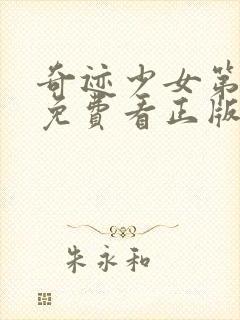 奇迹少女第
免費看正版
朱永和